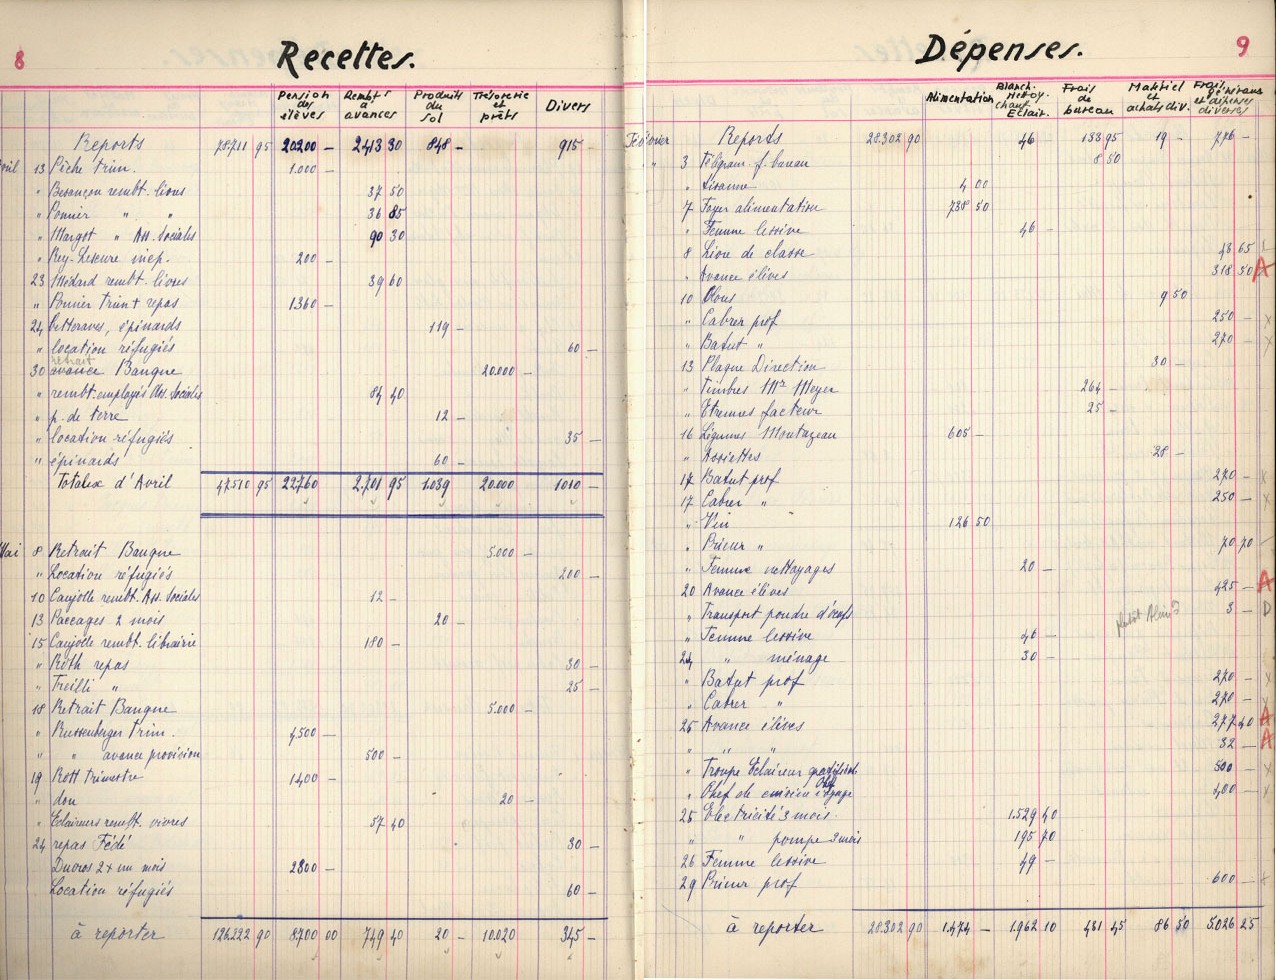 8
Recettes.
Pension des élèves
Rembts à avances
Produits du sol
Trésorerie et prêts
Divers
Reports 78.711 95 20200 — 2413 30 848 — 915 —
13 Pêche trim. 1.000 —
" Besançon rembt. lions 37 50
" Ponnier " " 36 85
" Margot " Ass. Sociales 90 30
" Rey-Leseure insp. 200 —
23 Médard rembt. livres 39 60
" Ponnier trim + repas 1360 —
24 betteraves, épinards 119 —
" location réfugiés 60 —
retrait
30 avance Banque 20.000 —
" rembt. employés Ass. Sociales 84 40
" p. de terre 12 —
" location réfugiés 35 —
" épinards 60 —
Totaux d'Avril 47510 95 22760 2.701 95 1.039 20.000 1010 —
Mai 8 Retrait Banque 5.000 —
" Location réfugiés 200 —
10 Caujolle rembt. Ass. Sociales 12 —
13 Paccages 2 mois 20 —
15 Caujolle rembt. librairie 180 —
" Röth repas 30 —
" Treilli " 25 —
18 Retrait Banque 5.000 —
" Russenberger trim. 4,500 —
" " avance provision 500 —
19 Rott trimestre 1400 —
" don 20 —
" Eclaireurs rembt. vivres 57 40
24 repas Fédé 30 —
Ducros 2t un mois 2800 —
Location réfugiés 60 —
à reporter 126.222 90 8700 00 749 40 20 — 10.020 345 —
9
Dépenses.
Alimentation
Blanch. Nettoy. Chauf. Eclair.
Frais de bureau
Matériel et achats div.
Frais généraux et dépenses diverses
Février Reports 28.302 90 46 133 95 19 — 776 —
" 3 Télégram f. bureau 8 50
" Tisanne 4 00
7 Foyer alimentation 738 50
" Femme lessive 46 —
8 Livre de classe 43 65
" Avance élèves 318 50 A
10 Clous 9 50
" Cabrer prof 250 — x
" Batut " 270 — x
13 Plaque Direction 30 —
" Timbres Mr Meyer 264 —
" Etrennes facteur 25 —
16 Légumes Montazeau 605 —
" Assiettes 28 —
17 Batut prof 270 — x
17 Cabrer " 250 — x
" Vin 126 50
" Prieur " 70 70
" Femme nettoyages 20 —
20 Avance élèves 425 — A
" Transport poudre d'oeufs plutôt Alim? 3 — D
" Femme lessive 46 —
24 " ménage 30 —
" Batut prof 270 — x
" Cabrer " 270 — x
25 Avance élèves 277 40 A
" " " 32 — A
" Troupe Eclaireur 500 — x
" Chef de voyage 400 — x
25 Electricité 3 mois. 1.529 40
" " pompe 2 mois 195 70
26 Femme lessive 49 —
29 Prieur prof 600 — x
à reporter 28.302 90 1.474 — 1.962 10 431 45 86 50 5.026 25